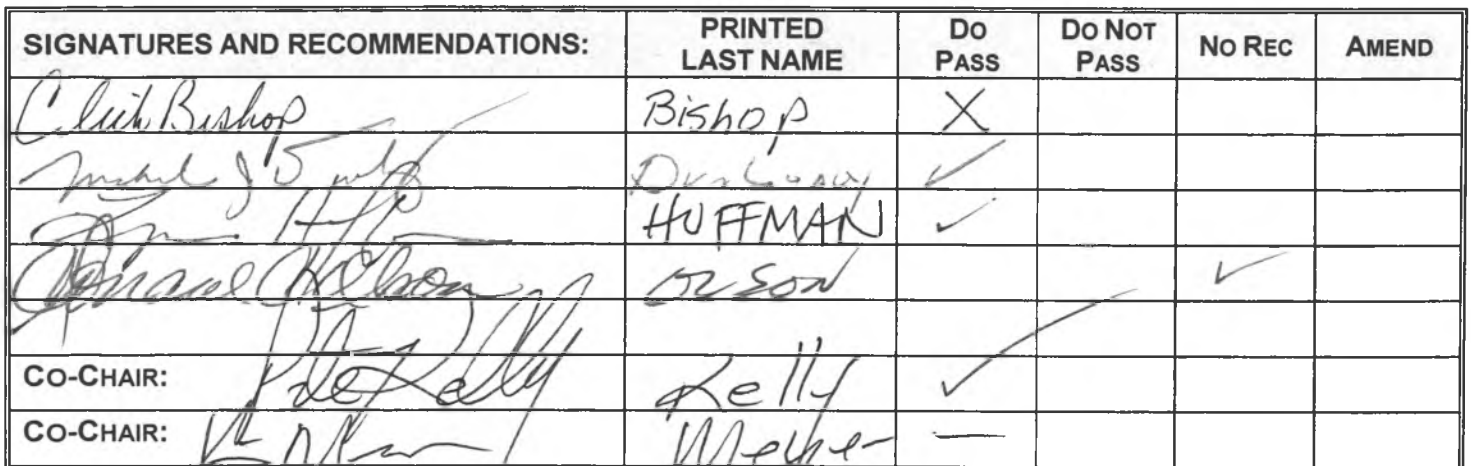 SIGNATURES AND RECOMMENDATIONS: PRINTED LAST NAME DO PASS DO NOT PASS NO REC AMEND
Click Bishop Bishop X
Dunleavy ✓
HUFFMAN ✓
Olson ✓
CO-CHAIR: Pete Kelly Kelly ✓
CO-CHAIR: —